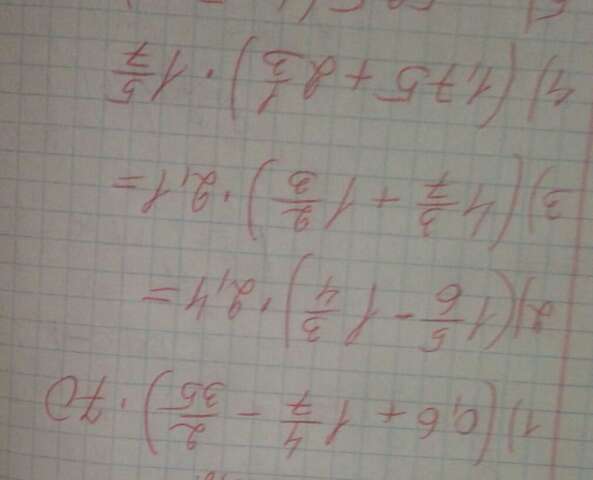 1) (0,6 + 1 4/7 - 2/35) · 70
2) (1 5/6 - 1 3/4) · 2,4 =
3) (1 3/7 + 1 2/3) · 2,1 =
4) (1,75 + 2 1/3) · 1 5/7